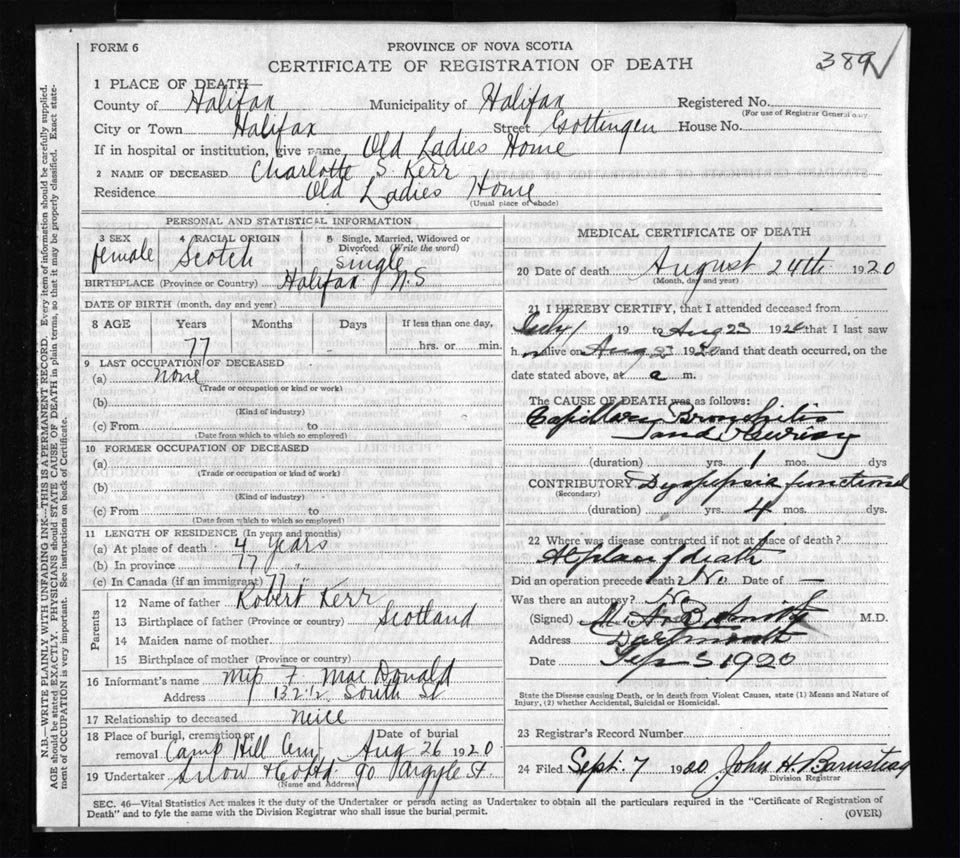 FORM 6
PROVINCE OF NOVA SCOTIA
CERTIFICATE OF REGISTRATION OF DEATH
389
1 PLACE OF DEATH
County of Halifax Municipality of Halifax Registered No.
(For use of Registrar General only)
City or Town Halifax Street Gottingen House No.
If in hospital or institution, give name Old Ladies Home
2 NAME OF DECEASED Charlotte S. Kerr
Residence Old Ladies Home
(Usual place of abode)
PERSONAL AND STATISTICAL INFORMATION
3 SEX female
4 RACIAL ORIGIN Scotch
5 Single, Married, Widowed or Divorced (Write the word) single
BIRTHPLACE (Province or Country) Halifax N.S
DATE OF BIRTH (month, day and year)
8 AGE Years Months Days If less than one day,
77 hrs. or min.
9 LAST OCCUPATION OF DECEASED
(a) none
(Trade or occupation or kind or work)
(b)
(Kind of industry)
(c) From to
(Date from which to which so employed)
10 FORMER OCCUPATION OF DECEASED
(a)
(Trade or occupation or kind of work)
(b)
(Kind of industry)
(c) From to
(Date from which to which so employed)
11 LENGTH OF RESIDENCE (In years and months)
(a) At place of death 4 years
(b) In province 77 "
(c) In Canada (if an immigrant) 77 "
Parents
12 Name of father Robert Kerr
13 Birthplace of father (Province or country) Scotland
14 Maiden name of mother
15 Birthplace of mother (Province or country)
16 Informant's name Miss F. MacDonald
Address 132 1/2 South St
17 Relationship to deceased neice
18 Place of burial, cremation or removal Camp Hill Cem Date of burial Aug 26 1920
19 Undertaker Snow & Co Ltd. 90 Argyle St.
(Name and Address)
MEDICAL CERTIFICATE OF DEATH
20 Date of death August 24th 1920
(Month, day and year)
21 I HEREBY CERTIFY, that I attended deceased from
July 1 19 to Aug 23 1920 that I last saw
h alive on Aug 23 1920 and that death occurred, on the
date stated above, at a m.
The CAUSE OF DEATH was as follows:
Capillary Bronchitis
and Pleurisy
(duration) yrs. 1 mos. dys
CONTRIBUTORY Dyspepsia functional
(Secondary)
(duration) yrs. 4 mos. dys.
22 Where was disease contracted if not at place of death?
At place of death
Did an operation precede death? No Date of —
Was there an autopsy? No
(Signed) M.D.
Address Dartmouth
Date Sep 3 1920
State the Disease causing Death, or in death from Violent Causes, state (1) Means and Nature of
Injury, (2) whether Accidental, Suicidal or Homicidal.
23 Registrar's Record Number
24 Filed Sept. 7 1920 John H. Barnstead
Division Registrar
SEC. 46—Vital Statistics Act makes it the duty of the Undertaker or person acting as Undertaker to obtain all the particulars required in the "Certificate of Registration of
Death" and to fyle the same with the Division Registrar who shall issue the burial permit.
(OVER)
N.B.—WRITE PLAINLY WITH UNFADING INK—THIS IS A PERMANENT RECORD. Every item of information should be carefully supplied.
AGE should be stated EXACTLY. PHYSICIANS should STATE CAUSE OF DEATH in plain terms, so that it may be properly classified. Exact state-
ment of OCCUPATION is very important. See instructions on back of Certificate.